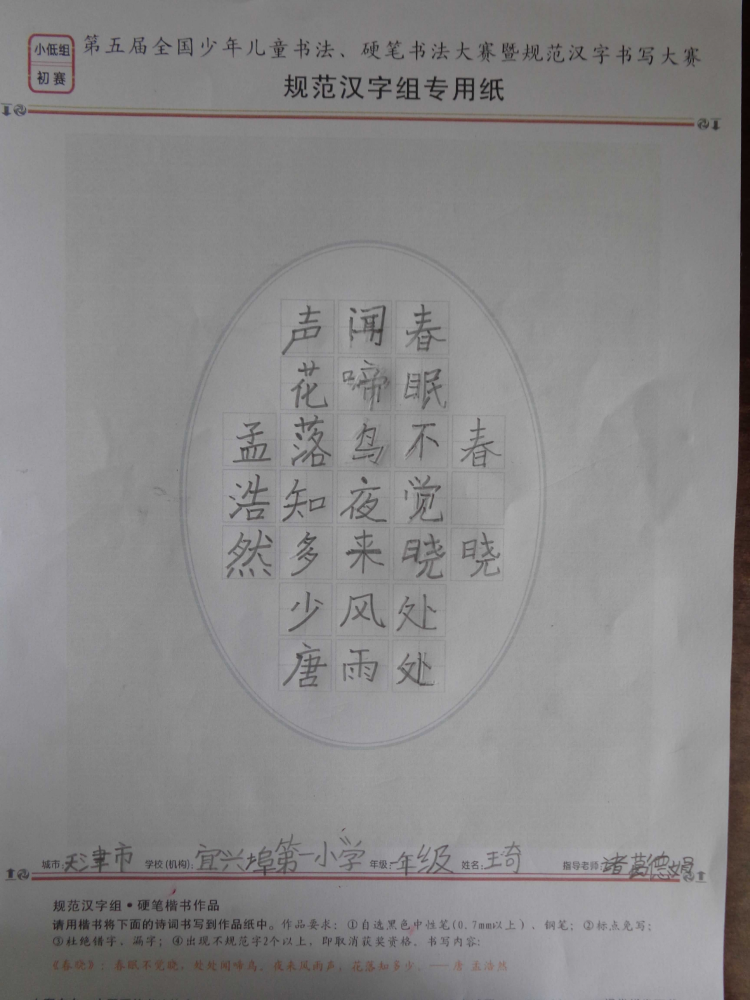 小低组
初赛
第五届全国少年儿童书法、硬笔书法大赛暨规范汉字书写大赛
规范汉字组专用纸
春晓
春眠不觉晓处处
闻啼鸟夜来风雨
声花落知多少唐
孟浩然
城市:天津市 学校(机构):宜兴埠第一小学 年级:一年级 姓名:王琦 指导老师:诸葛德
规范汉字组·硬笔楷书作品
请用楷书将下面的诗词书写到作品纸中。作品要求:①自选黑色中性笔(0.7mm以上)、钢笔;②标点免写;
③杜绝错字、漏字;④出现不规范字2个以上,即取消获奖资格。书写内容:
《春晓》:春眠不觉晓,处处闻啼鸟。夜来风雨声,花落知多少。——唐 孟浩然